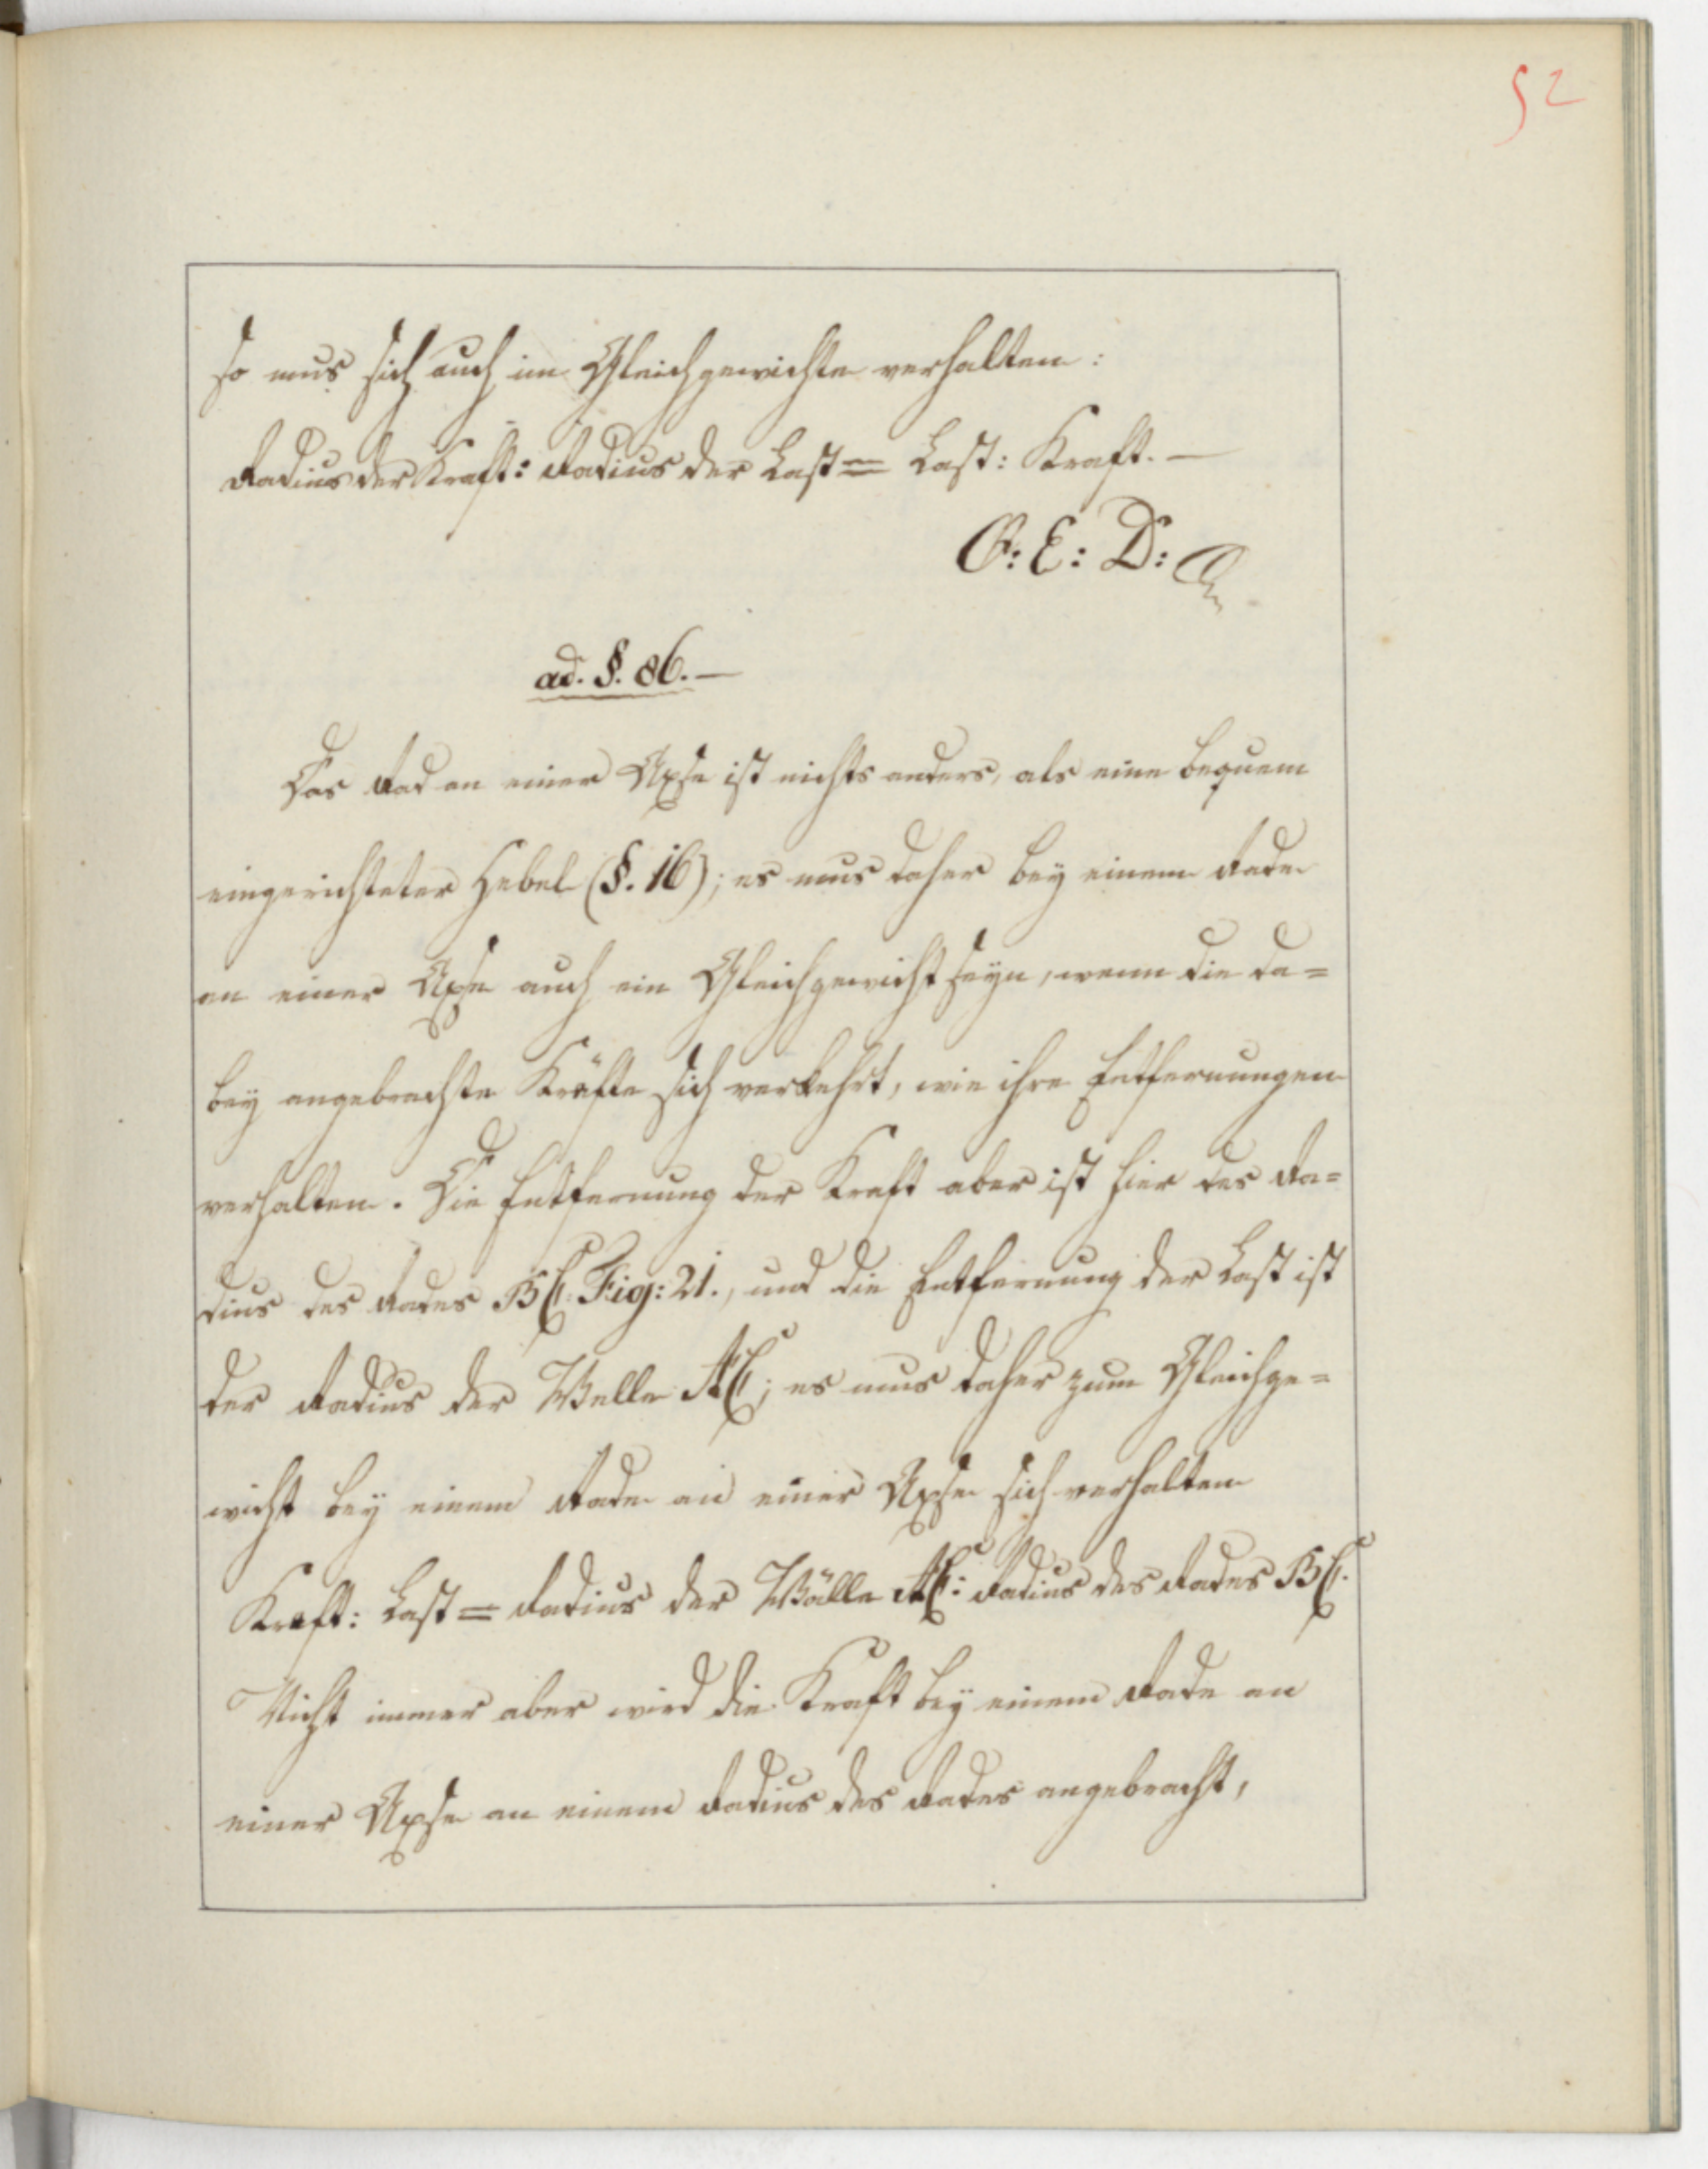 52
so mus sich auch im Gleichgewichte verhalten:
Radius der Kraft: Radius der Last = Last: Kraft. —
Q: E: D:
ad. §. 86. —
Das Rad an einer Axse ist nichts anders, als eine bequem
eingerichteter Hebel (§. 16); es mus daher bey einem Rade
an einer Axse auch ein Gleichgewicht seyn, wenn die da=
bey angebrachte Kräfte sich verkehrt, wie ihre Entfernungen
verhalten. Die Entfernung der Kraft aber ist hier der Ra=
dius des Rades BC. Fig: 21., und die Entfernung der Last ist
der Radius der Welle AC; es mus daher zum Gleichge=
wicht bey einem Rade an einer Axse sich verhalten
Kraft: Last = Radius der Wälle AC: Radius des Rades BC.
Nicht immer aber wird die Kraft bey einem Rade an
einer Axse an einem Radius des Rades angebracht,